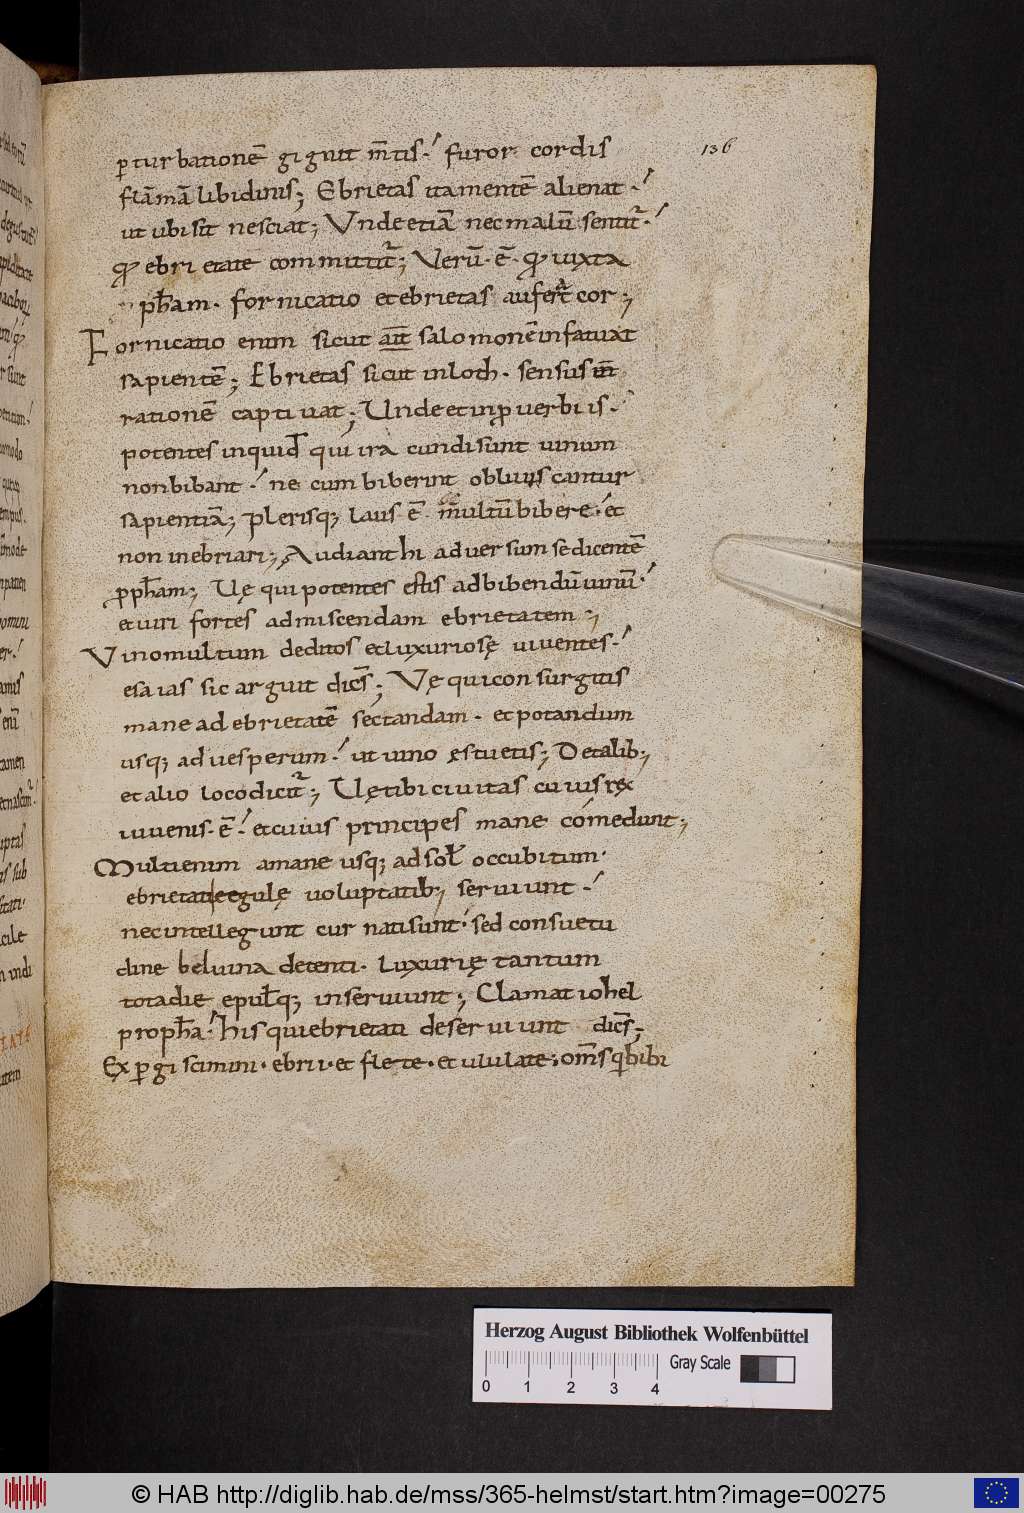 136
p̱turbationē gignit m̄tis· furor cordis
flāmā libidinis; Ebrietas ita mentē alienat·
ut ubi sit nesciat; Unde etiā nec malū sentit᷑·
ꝙ ebrietate committit᷑; Verū· ē· ꝙ iuxta
ꝓph̄am· fornicatio et ebrietas aufert cor;
Fornicatio enim sicut aīt salomonē infatuat
sapientē; Ebrietas sicut in loth· sensus
rationē captiuat; Unde et in ꝓuerbiis·
potentes inquid qui iracundi sunt uinum
non bibant· ne cum biberint obliuiscantur
sapientiā; plerisq; laus ē multū bibere· et
non inebriari; Audiant hi aduersum se dicentē
ꝓph̄am; Uę qui potentes estis ad bibendū uinū·
et uiri fortes ad miscendam ebrietatem;
Vino multum deditos et luxuriosę uiuentes·
esaias sic arguit dicēs; Vę qui consurgitis
mane ad ebrietatē sectandam· et potandum
usq; ad uesperum· ut uino ęstuetis; De talib;
et alio loco dicit᷑; Uę tibi ciuitas cuius rex
iuuenis· ē· et cuius principes mane comedunt;
Multi enim a mane usq; ad sol̄ occubitum·
ebrietati et gulę uoluptatib; seruiunt·
nec intellegunt cur nati sunt· sed consuetu
dine beluina detenti· luxurię tantum
tota die epul̄q; inseruiunt; Clamat iohel
propha· his qui ebrietati deseruiunt dicēs;
Exp̱giscimini· ebrii· et flete· et ululate; om̄s q̄ bibi
Herzog August Bibliothek Wolfenbüttel
0 1 2 3 4 Gray Scale
© HAB http://diglib.hab.de/mss/365-helmst/start.htm?image=00275